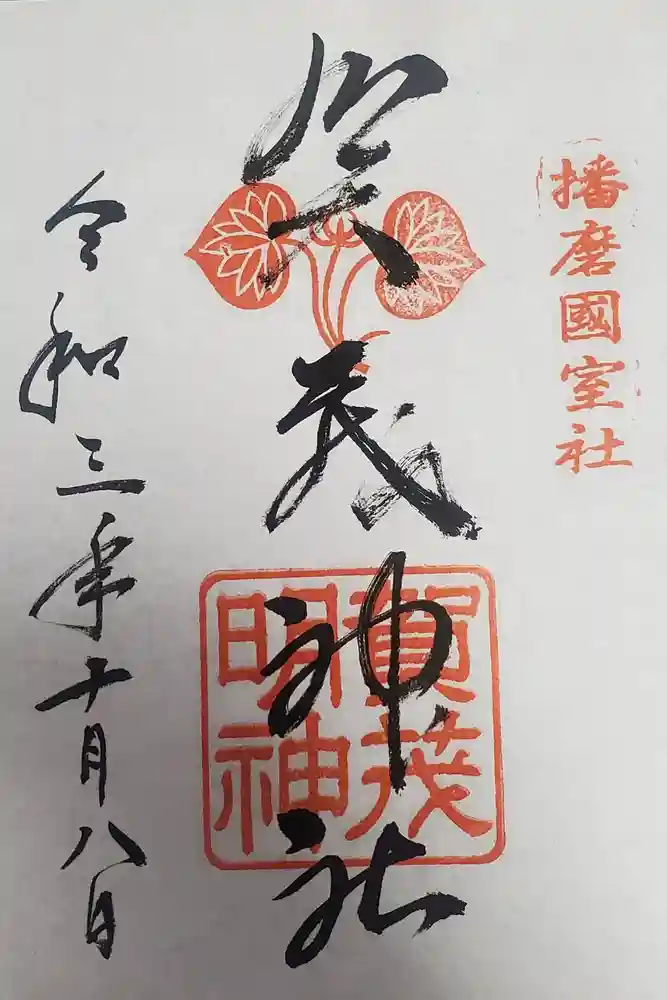 播磨國室社
賀茂神社
賀茂
明神
令和三年十月八日